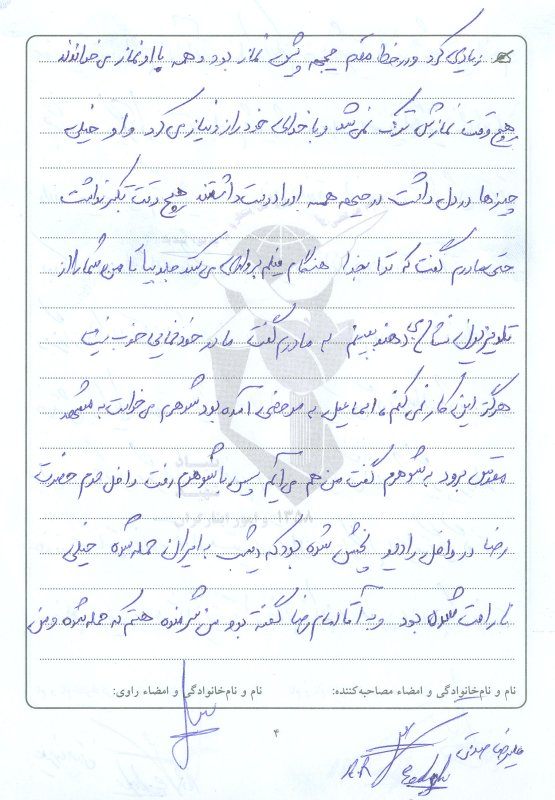 زیادی کرد و در خط مقدم جبهه پیش نماز بود و همه با او نماز می خواندند
هیچ وقت نمازش ترک نمی شد و با خدای خود راز و نیاز می کرد و او خیلی
چیزها در دل داشت در جبهه همه او را دوست داشتند هیچ وقت تکبر نداشت
حتی مادرم گفت که ترا بخدا هنگام فیلم برداری می کنند جلو بیا تا من شما را از
تلویزیون نشان می دهند ببینم به مادرم گفت مادر خودنمایی خوب نیست
هرگز این کار نمی کنم، اسماعیل به مرخصی آمده بود شوهرم می خواست به مشهد
مقدس برود به شوهرم گفت من هم می آیم پس با شوهرم رفت داخل حرم حضرت
رضا در داخل رادیو پخش شده بود که دیشب به ایران حمله شده خیلی
ناراحت شده بود و به آقا امام رضا گفته بود من شرمنده هستم که حمله شده و من
نام و نام‌خانوادگی و امضاء مصاحبه‌کننده:
نام و نام‌خانوادگی و امضاء راوی:
علیرضا صدقی
۴